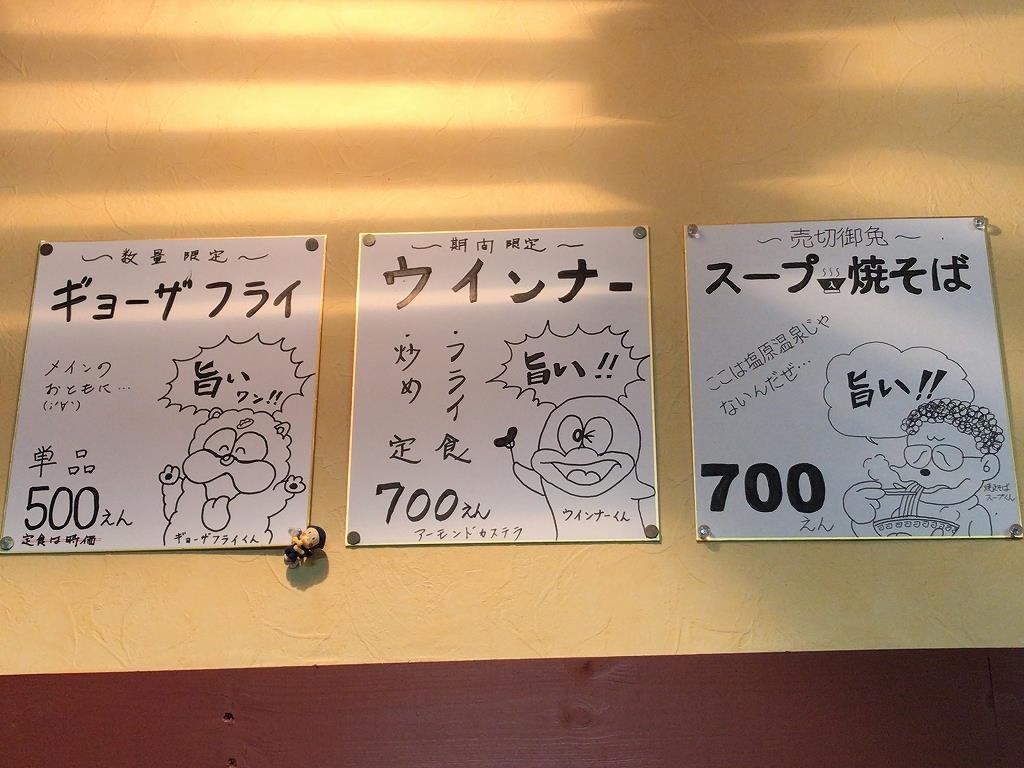 〜数量限定〜
ギョーザフライ
メインの
おともに…
(;'∀')
旨い
ワン!!
単品
500えん
定食は時価
ギョーザフライくん
〜期間限定〜
ウインナー
・フライ
・炒め
定食
旨い!!
700えん
アーモンドカステラ
ウインナーくん
〜売切御免〜
スープ入焼そば
ここは塩原温泉じゃ
ないんだぜ…
旨い!!
700
えん
焼そば
スープくん